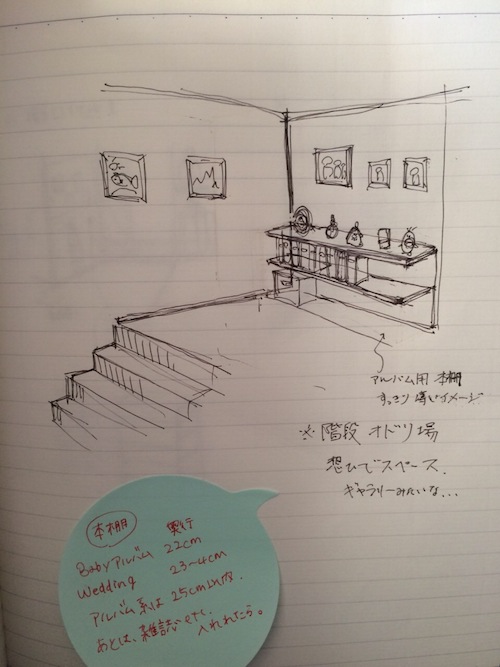 アルバム用 本棚
すっきり 薄いイメージ
※階段 オドリ場
想ひでスペース.
ギャラリーみたいな...
本棚 奥行
Babyアルバム 22cm
Wedding 23~4cm
アルバム系は 25cm以内.
あとは、雑誌 etc.
入れれたら。